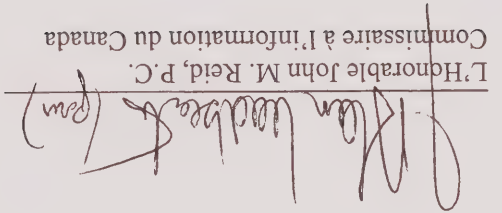 (pour)
L'Honorable John M. Reid, P.C.
Commissaire à l'information du Canada